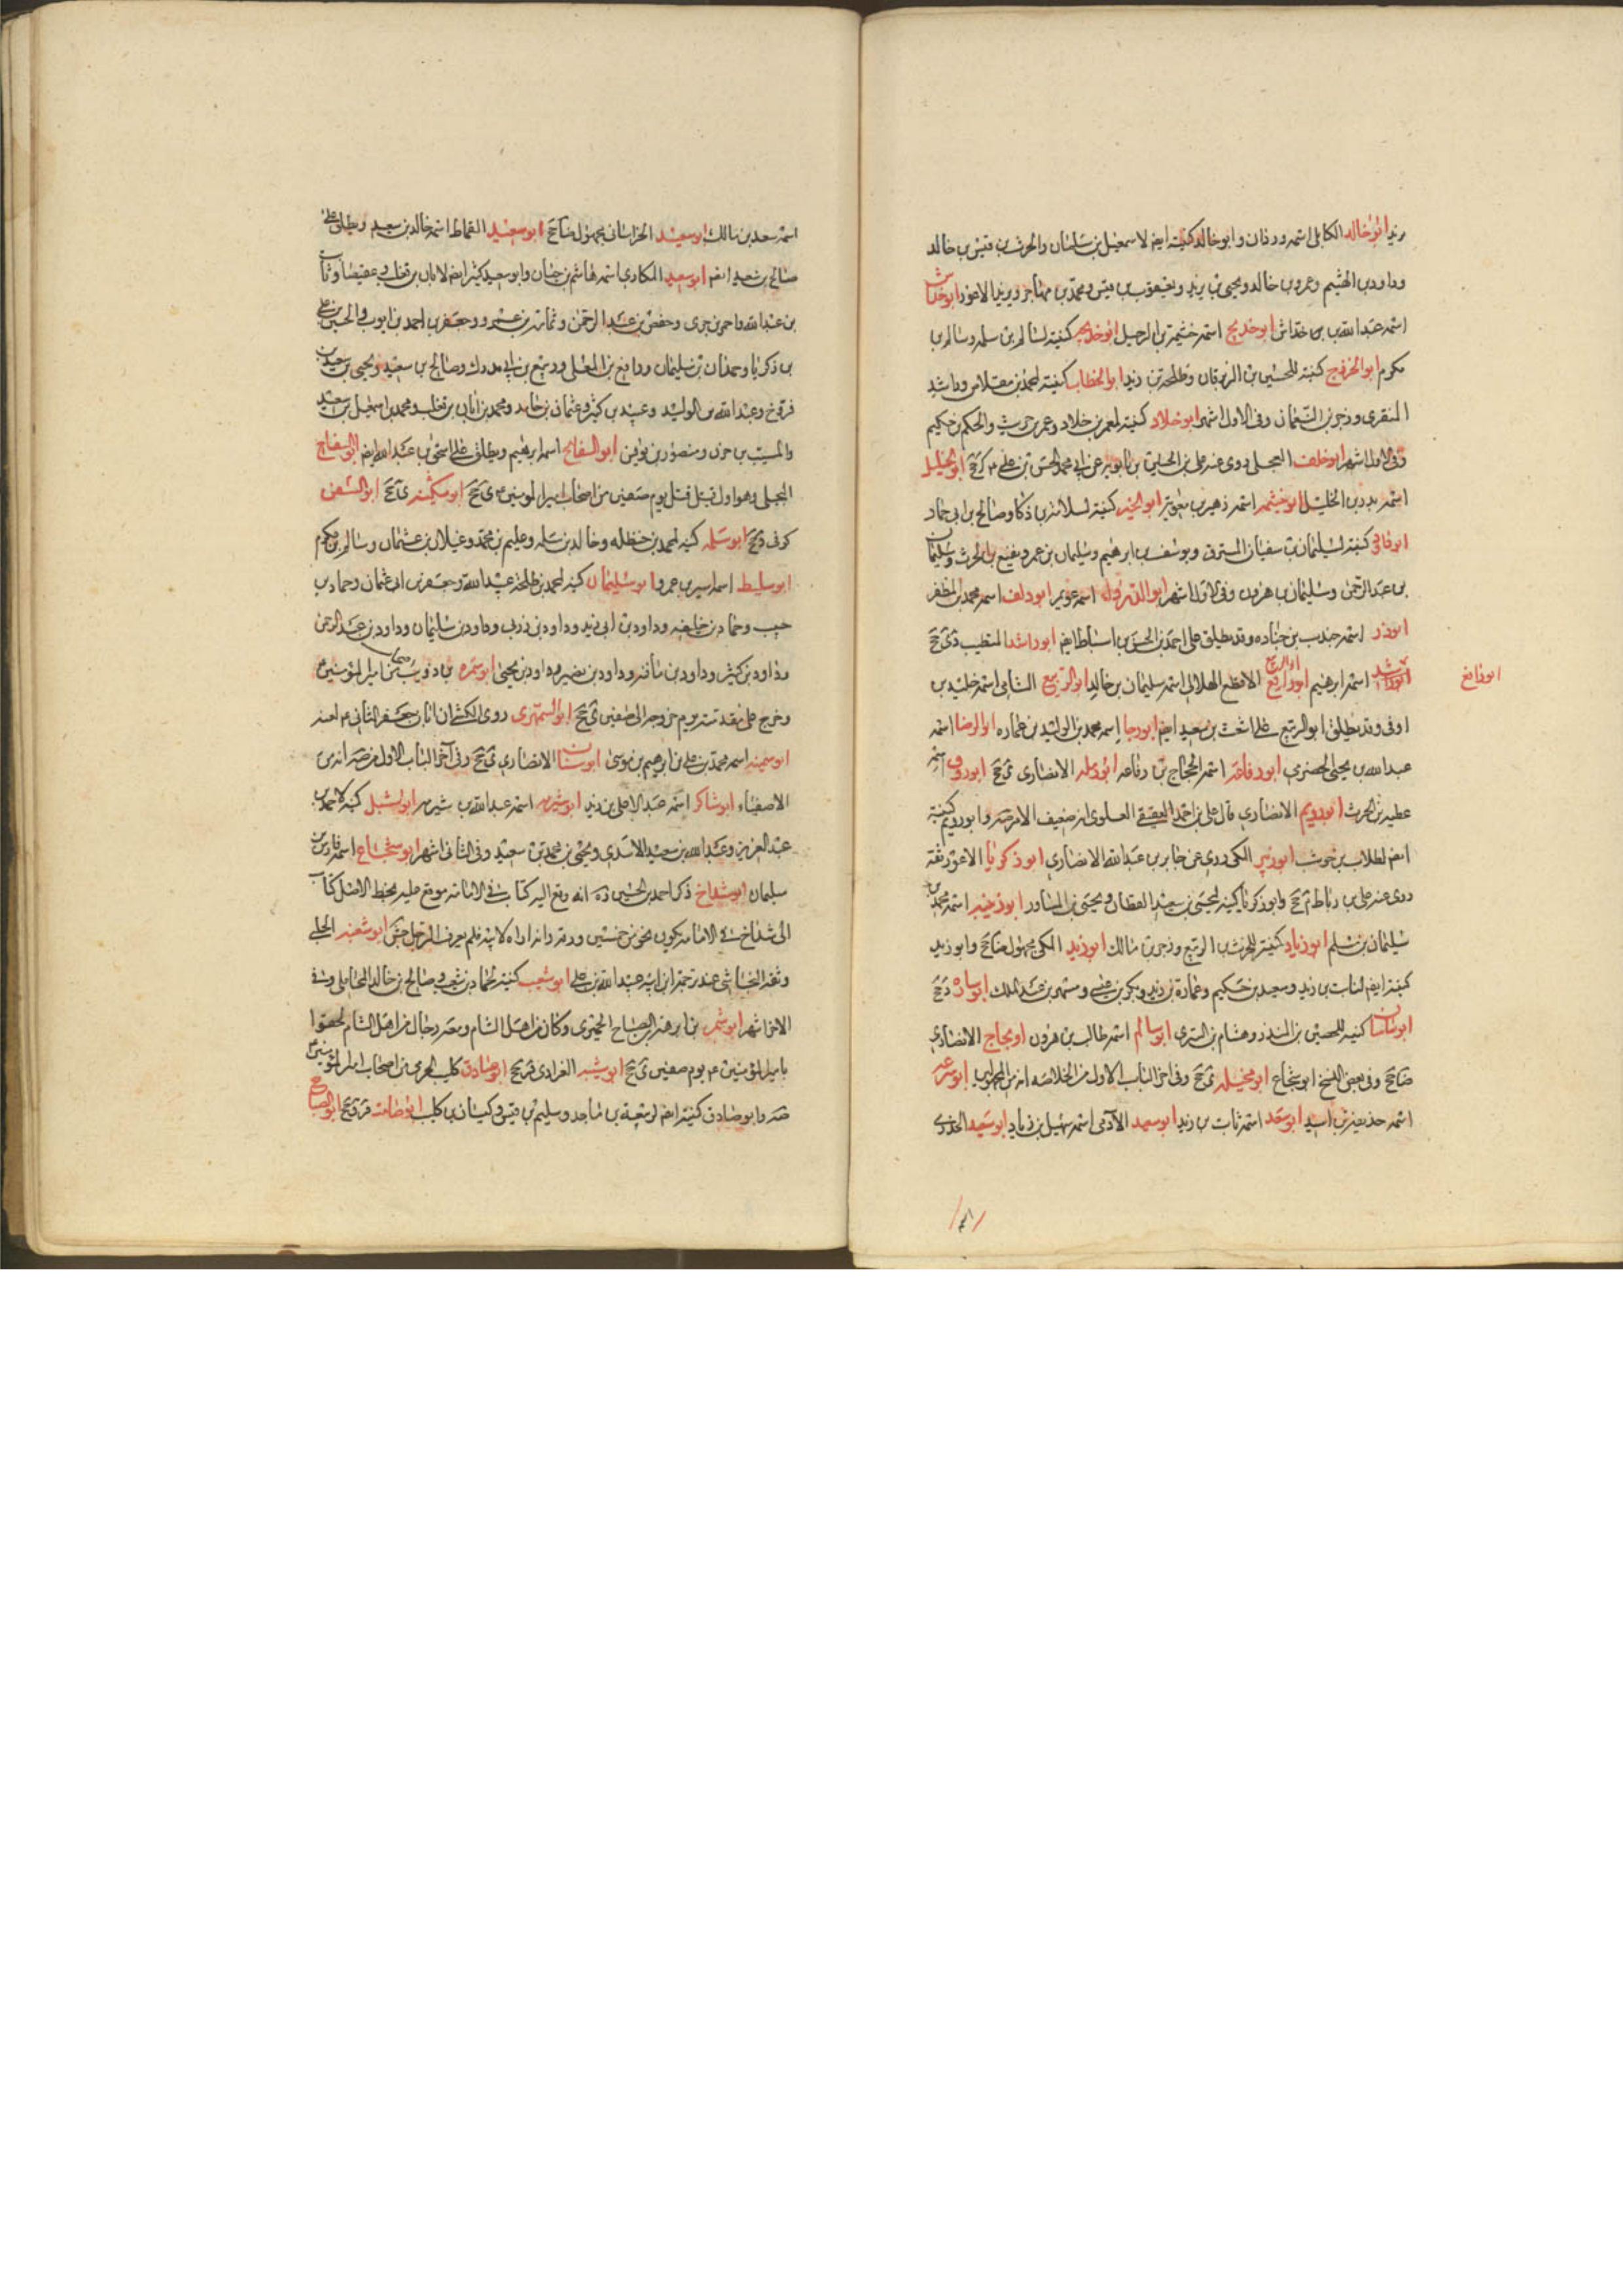 يزيد ابو خالد الكابلي اسمه وردان وابو خالد كنيته ايضا لاسمعيل بن سلمان والحرث بن قيس بن خالد
وداود بن الهيثم وعمرو بن خالد ويحيى بن يزيد ويعقوب بن قيس ومحمد بن مهاجر ويزيد الاعور ابو خداش
اسمه عبد الله بن خداش ابو خديج اسمه خثيمة بن الرحيل ابو خديجه كنيته لسالم بن سلمه وسالم بن
مكرم ابو الخزرج كنية للحسين بن الزبرقان وطلحة بن زيد ابو الخطاب كنيته لمحمد بن مقلاص وراشد
المنقري وزجر بن النعمان وفي الاول اشهر ابو خلاد كنيته لمعمر بن خلاد وعمر بن حريث والحكم بن حكيم
وفي الاول اشهر ابو خلف العجلي روى عنه علي بن الحسين بن بابويه عن ابي محمد الحسن بن علي ع ابو الخليل
اسمه بدر بن الخليل ابو خيثمه اسمه زهير بن معويه ابو الخير كنيته لسلامة بن ذكا وصالح بن ابي حماد
كنيته لسليمان بن سفيان المسترق ويوسف بن ابرهيم وسليمان بن عمرو ونفيع بن الحرث وسليمان
بن عبد الرحمن وسليمان بن هرون وفي الاول اشهر ابو الدرداء اسمه عويمر ابو دلف اسمه محمد بن المظفر
ابو ذر اسمه جندب بن جناده وقد يطلق على احمد بن الحسن بن اسباط ايضا ابو راشد المنقيب
ابو رافع
اسمه ابرهيم ابو الربيع الاقطع الهلالي اسمه سليمان بن خالد ابو الربيع الشامي اسمه خليد بن
اوفى وقد يطلق ابو الربيع على اشعث بن سعيد ايضا ابو رجا اسمه محمد بن الوليد بن عماره ابو الرضا اسمه
عبد الله بن يحيى الحضرمي ابو رفاعة اسمه الحجاج بن رفاعه ابو رمله الانصاري ابو روق اسمه
عطيه بن الحرث ابو رويم الانصاري قال علي بن احمد العقيقي العلوي انه ضعيف الامر صه وابو رويم كنية
ايضا لطلاب بن حوشب ابو الزبير المكي روى عن جابر بن عبد الله الانصاري ابو زكريا الاعور ثقة
روى عنه علي بن رباط وابو زكريا كنيته ليحيى بن سعيد القطان ويحيى بن المساور ابو زنيبه اسمه محمد بن
سليمان بن مسلم ابو زياد كنيته للحرث بن الربيع وزجر بن مالك ابو زيد المكي مجهول وابو زيد
كنيته ايضا لثابت بن زيد وسعيد بن حكيم وعمارة بن زيد وبكر بن عيسى ومسهر بن عبد الملك ابو ساره
ابو ساسان كنيته للحصين بن المنذر وهشام بن السري ابو سالم اسمه طالب بن هرون او بجاج الانصاري
وفي بعض النسخ ابو شجاع ابو سخيله وفي اخر الباب الاول من الخلاصه انه من المجهولين ابو سريحه
اسمه حذيفة بن اسيد ابو سعد اسمه ثابت بن زيد ابو سعيد الآدمي اسمه سهيل بن زياد ابو سعيد الخدري
اسمه سعد بن مالك ابو سعيد الخراساني مجهول ابو سعيد القماط اسمه خالد بن سعيد ويطلق على
صالح بن سعيد ايضا ابو سعيد المكاري اسمه هاشم بن حيان وابو سعيد كنية ايضا لابان بن تغلب وعقيصا وثابت
بن عبد الله واحمر بن جري وحفص بن عبد الرحمن وثمامة بن عمرو وجعفر بن احمد بن ايوب والحسن بن علي
بن زكريا وحمدان بن سليمان ورافع بن المعلى وربيع بن ابي مدرك وصالح بن سعيد ويحيى بن سعيد بن
فروخ وعبد الله بن الوليد وعبيد بن كثير وعثمان بن حامد ومحمد بن ابان بن تغلب ومحمد بن اسمعيل بن سعيد
والمسيب بن حزن ومنصور بن يونس ابو السفاتج اسمه ابرهيم ويطلق على اسحق بن عبد الله ايضا ابو السفاح
البجلي وهو اول قتيل قتل يوم صفين من اصحاب امير المومنين ع ابو سكينه ابو السفن
كوفي ابو سلمه كنيته لمحمد بن حنظله وخالد بن سلمه وعليم بن محمد وغيلان بن عثمان وسالم بن مكرم
ابو سليط اسمه اسير بن عمرو ابو سليمان كنيته لمحمد بن طلحه عبيد الله وجعفر بن ابي عثمان وحماد بن
حبيب وحماد بن خليفه وداود بن ابي يزيد وداود بن زربي وداود بن سليمان وداود بن عبد الرحمن
وداود بن كثير وداود بن مافنه وداود بن نصير وداود بن يحيى ابو سمره بن ذويب من اصحاب امير المؤمنين ع
وخرج على مقدمته يوم خروجه الى صفين ابو السمهري روى الكشي ان ابا جعفر الثاني ع لعنه
ابو سمينه اسمه محمد بن علي بن ابرهيم بن موسى ابو سنان الانصاري وفي آخر الباب الاول من صه انه من
الاصفياء ابو شاكر اسمه عبد الاعلى بن زيد ابو شبرمه اسمه عبد الله بن شبرمه ابو الشبل كنيته لاحمد بن
عبد العزيز وعبد الله بن سعيد الاسدي ويحيى بن محمد بن سعيد وفي الثاني اشهر ابو شجاع اسمه فارس بن
سليمان ابو شداخ ذكر احمد بن الحسين ره انه وقع اليه كتاب في الامامة موقع عليه بخط الاصل كتاب
ابي شداخ في الامامة يكون نحو من خمسين ورقة وانه اراه لابيه فلم يعرف الرجل جش ابو شعبه الحلبي
وثقه النجاشي عند ترجمة ابن ابنه عبيد الله بن علي ابو شعيب كنيته لحماد بن شعيب وصالح بن خالد المحاملي وفي
الاخر اشهر ابو شمر بن ابرهة بن الصباح الحميري وكان من اهل الشام ومعه رجال من اهل الشام لحقوا
بامير المؤمنين ع يوم صفين ابو شيبه الفزاري ابو صادق كليب الجرمي من اصحاب امير المؤمنين ع
صه وابو صادق كنيته ايضا لربيعة بن ناجد وسليم بن قيس وكيسان بن كليب ابو صامت ابو الصباح